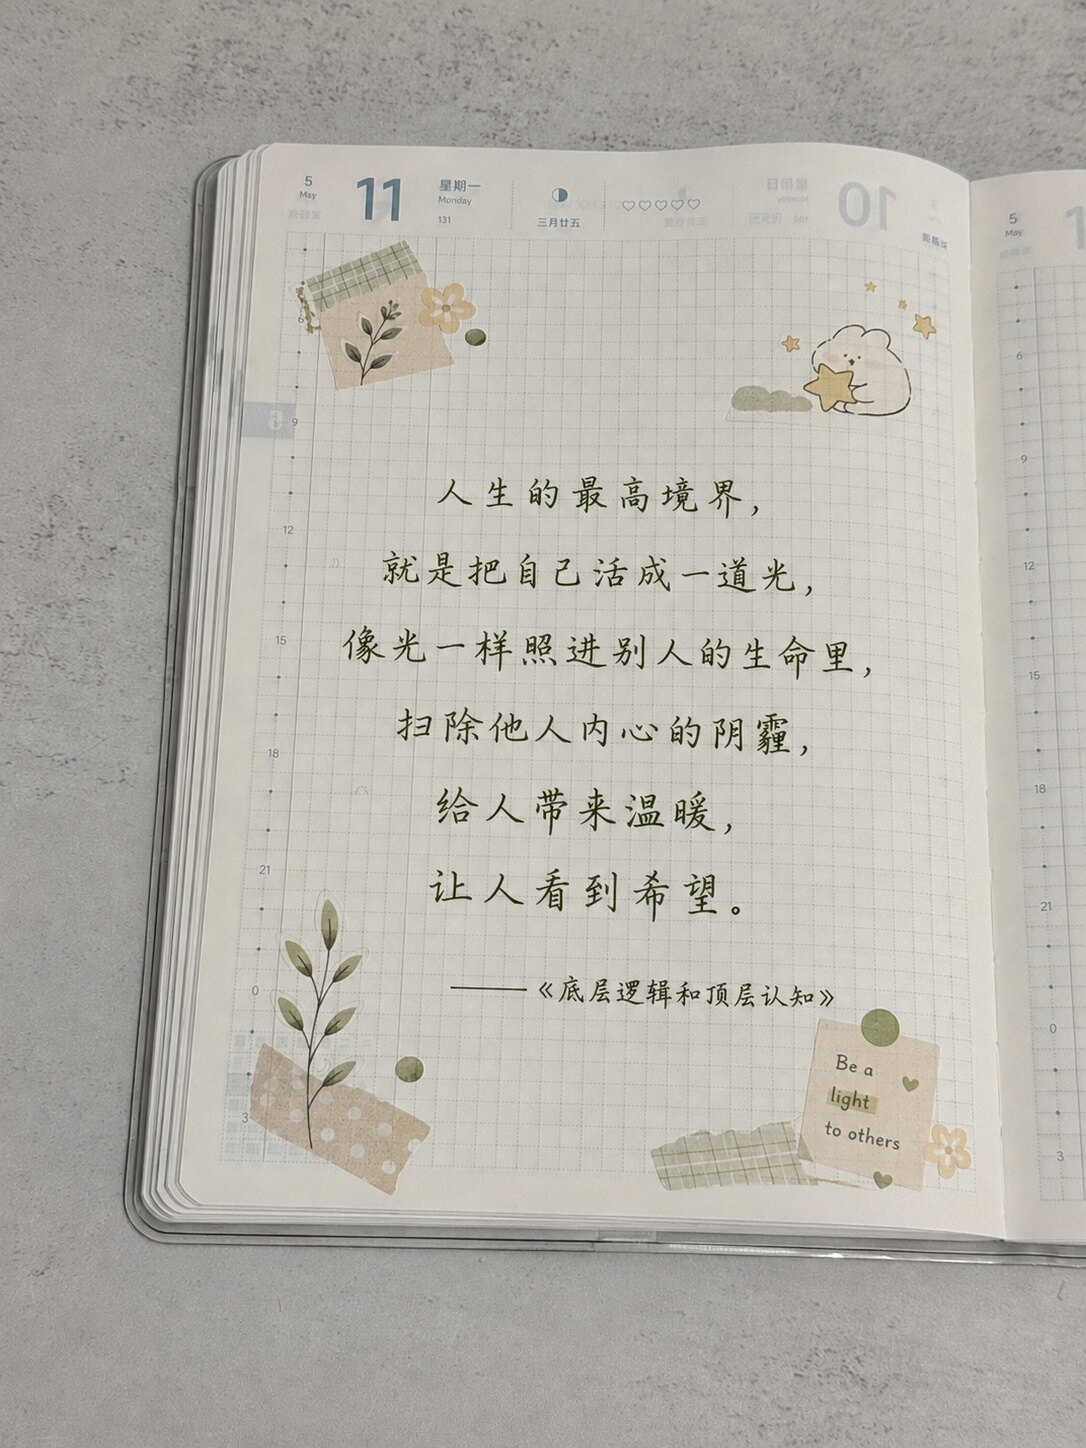 5
May
11
星期一
Monday
131
三月廿五
人生的最高境界,
就是把自己活成一道光,
像光一样照进别人的生命里,
扫除他人内心的阴霾,
给人带来温暖,
让人看到希望。
——《底层逻辑和顶层认知》
Be a
light
to others
6
9
12
15
18
21
0
3
5
May
1
6
9
12
15
18
21
0
3